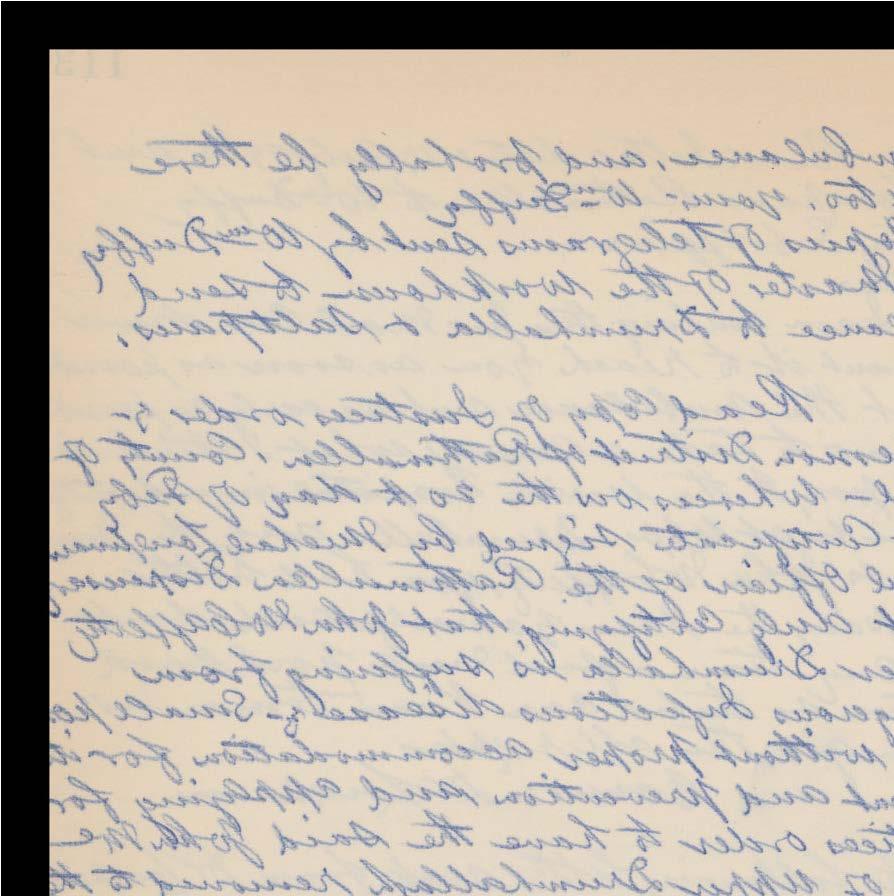 mbulance, and probably be there
too yours Wm Duffy
opies of telegrams sent by Wm Duffy
Master of the workhouse to send
ance to Drumhalla & Saltpans.
Read Copy of Justices order
ession District of Rathmullen, County of
l - Whereas on the 20th day of Feby
Certificate signed by Michael
l Officer of the Rathmullen Dispensary
t duly Certifying that John McCafferty
er Drumhalla is suffering from
gerous Infectious disease - Smallpo
without proper accommodation for
nt and prevention and applying for
tices order to have the said John Mc
of upper Drumhallagh removed to th